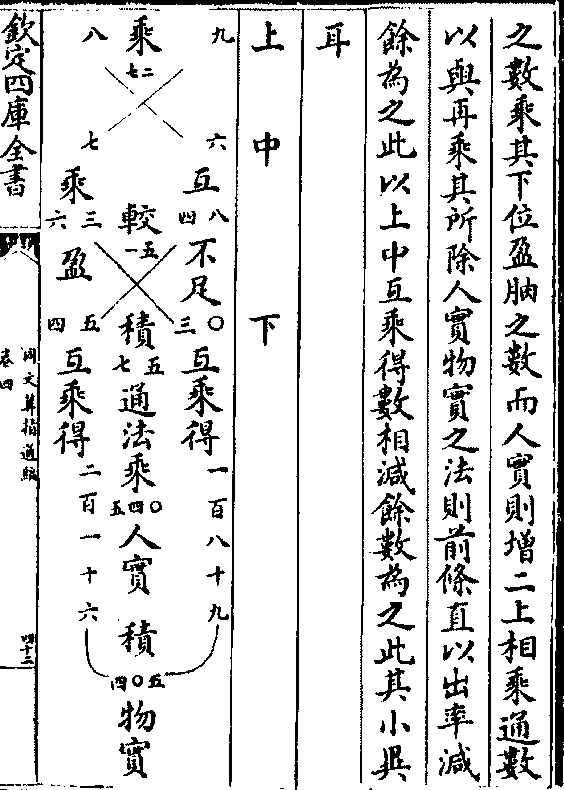 之數乘其下位盈朒之數而人實則增二上相乘通數
以與再乘其所除人實物實之法則前條直以出率減
餘為之此以上中互乘得數相減餘數為之此其小異
耳
上 中 下
九 六 互 八四 不足 〇三 互乘得 一百八十九
乘 二七 較 五一 積 五七 通法乘 〇四五 人實 積 五〇四 物實
八 七 乘 三六 盈 五四 互乘得 二百一十六
欽定四庫全書
同文算指通編
卷四
四十二